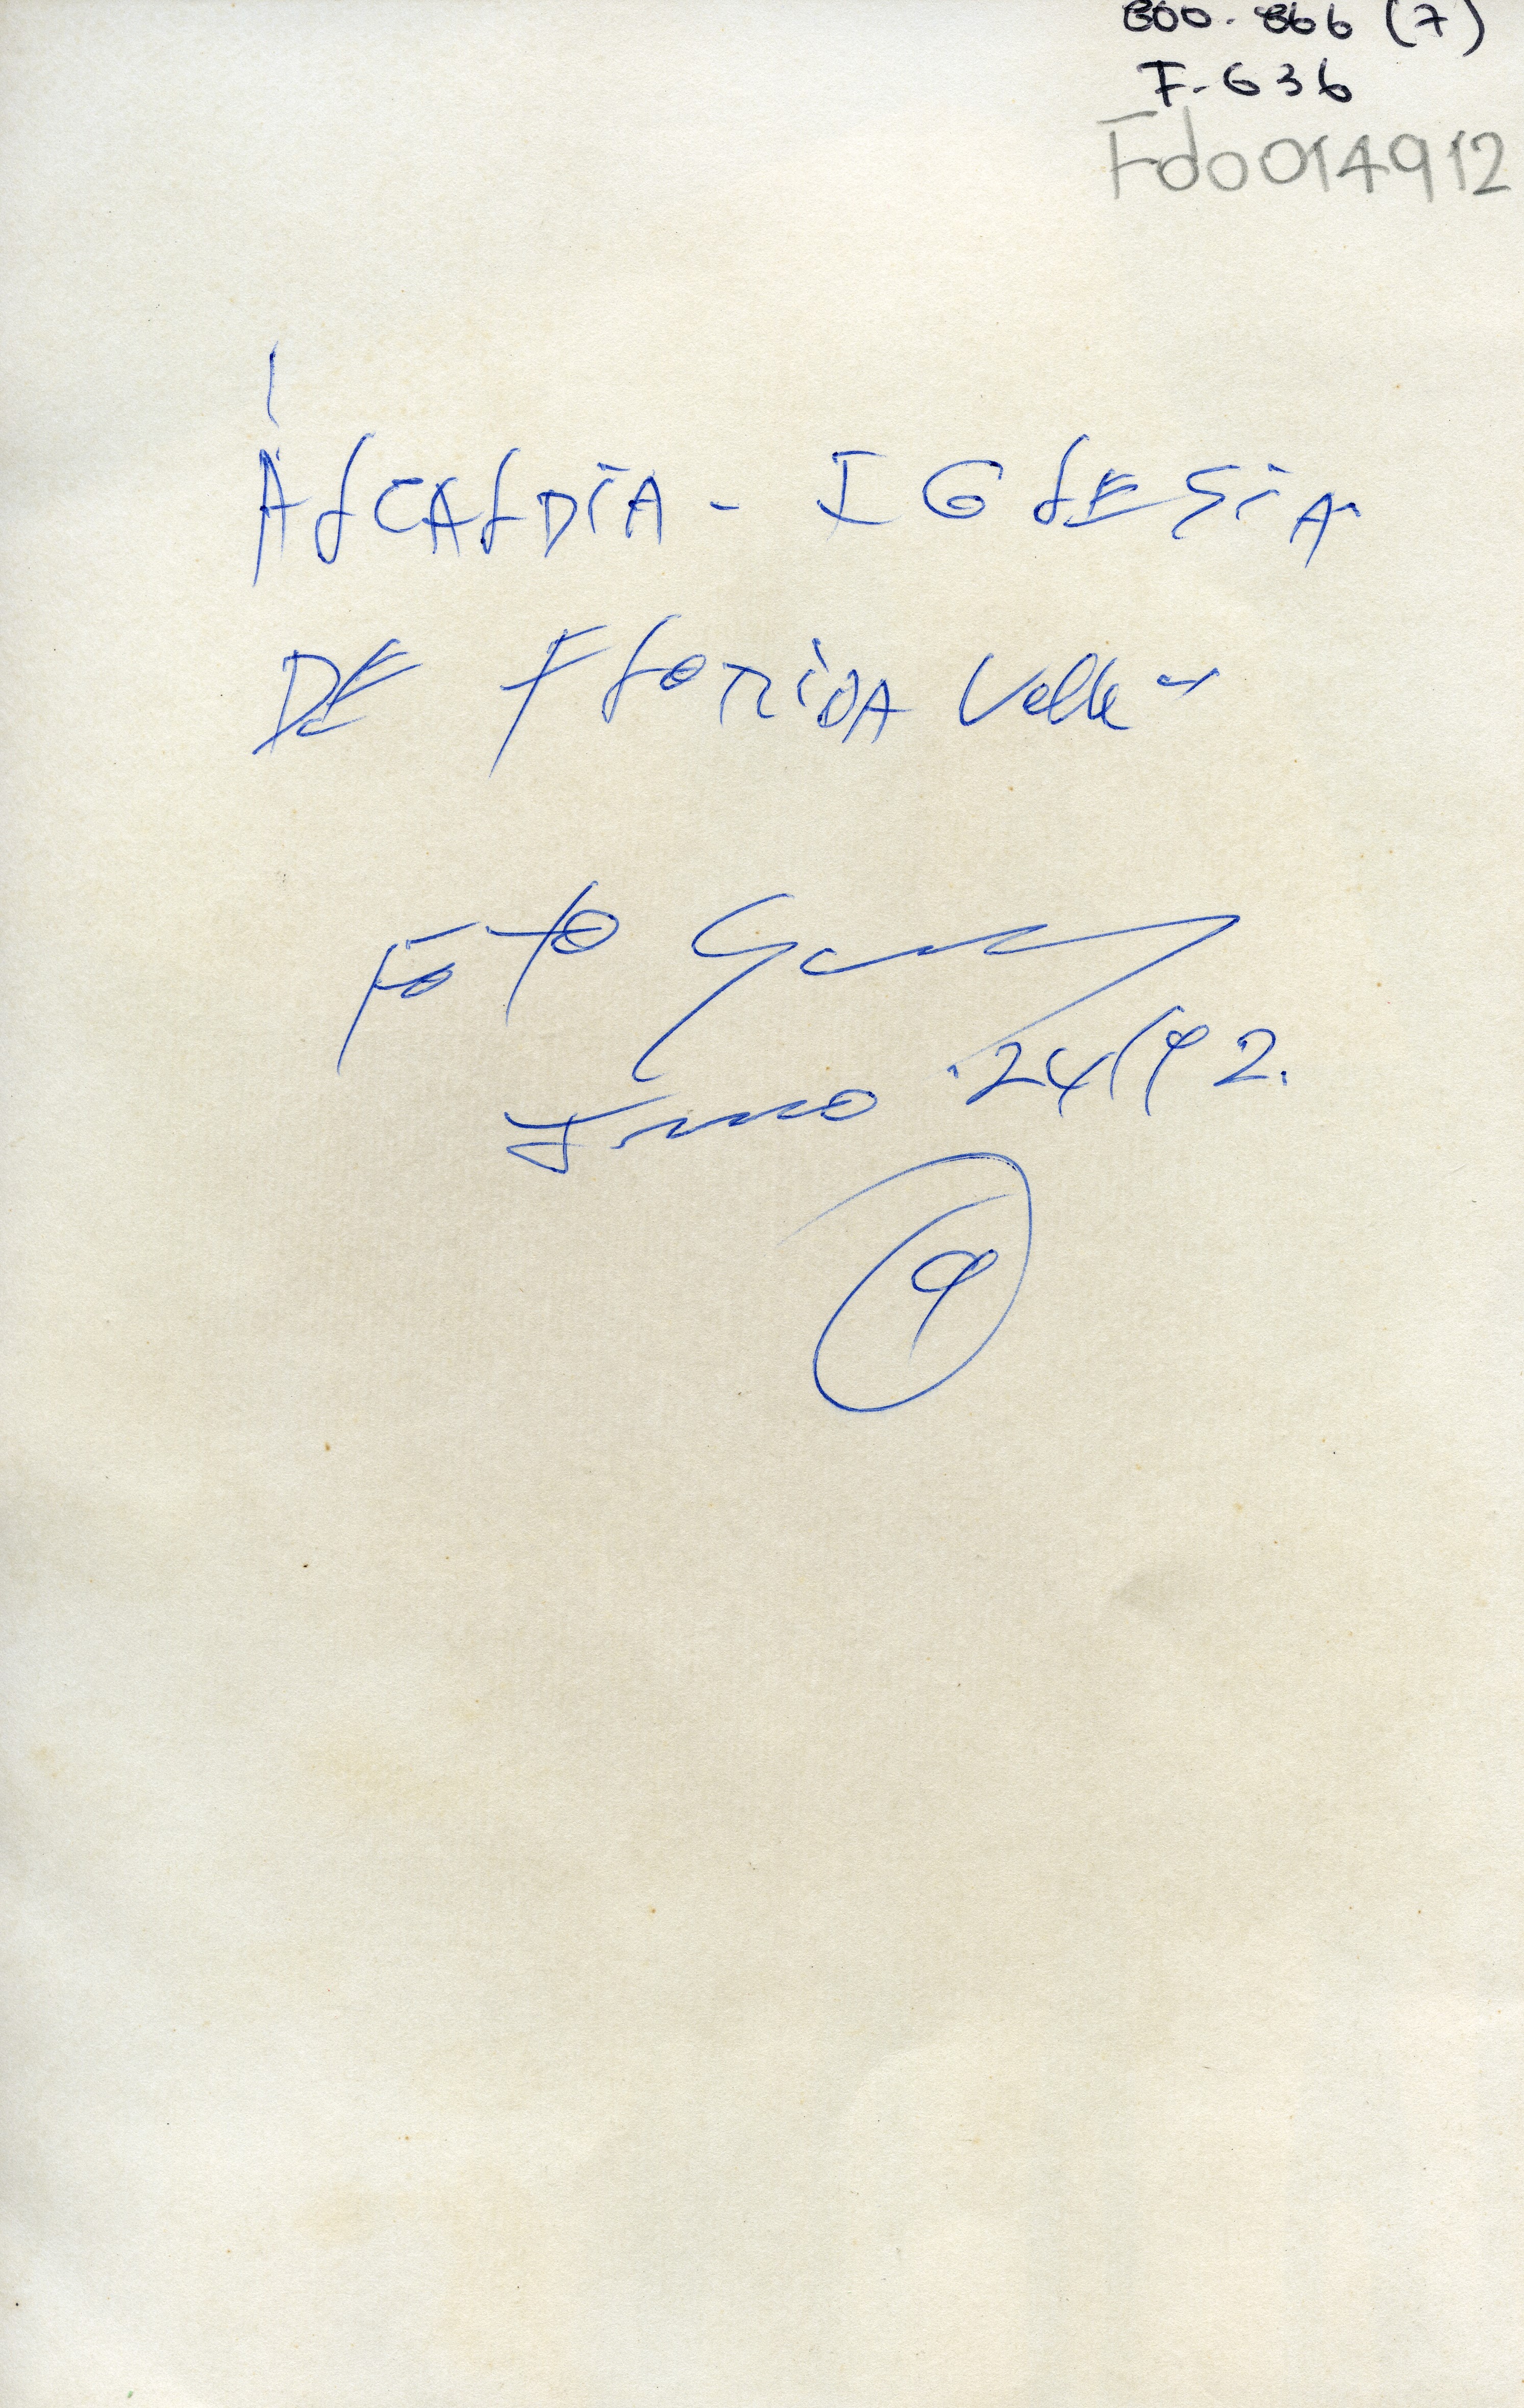 800-866 (7)
F-636
Fdo014912
ALCALDÍA - IGLESIA
DE FLORIDA Valle
FOTO
24/92.
9